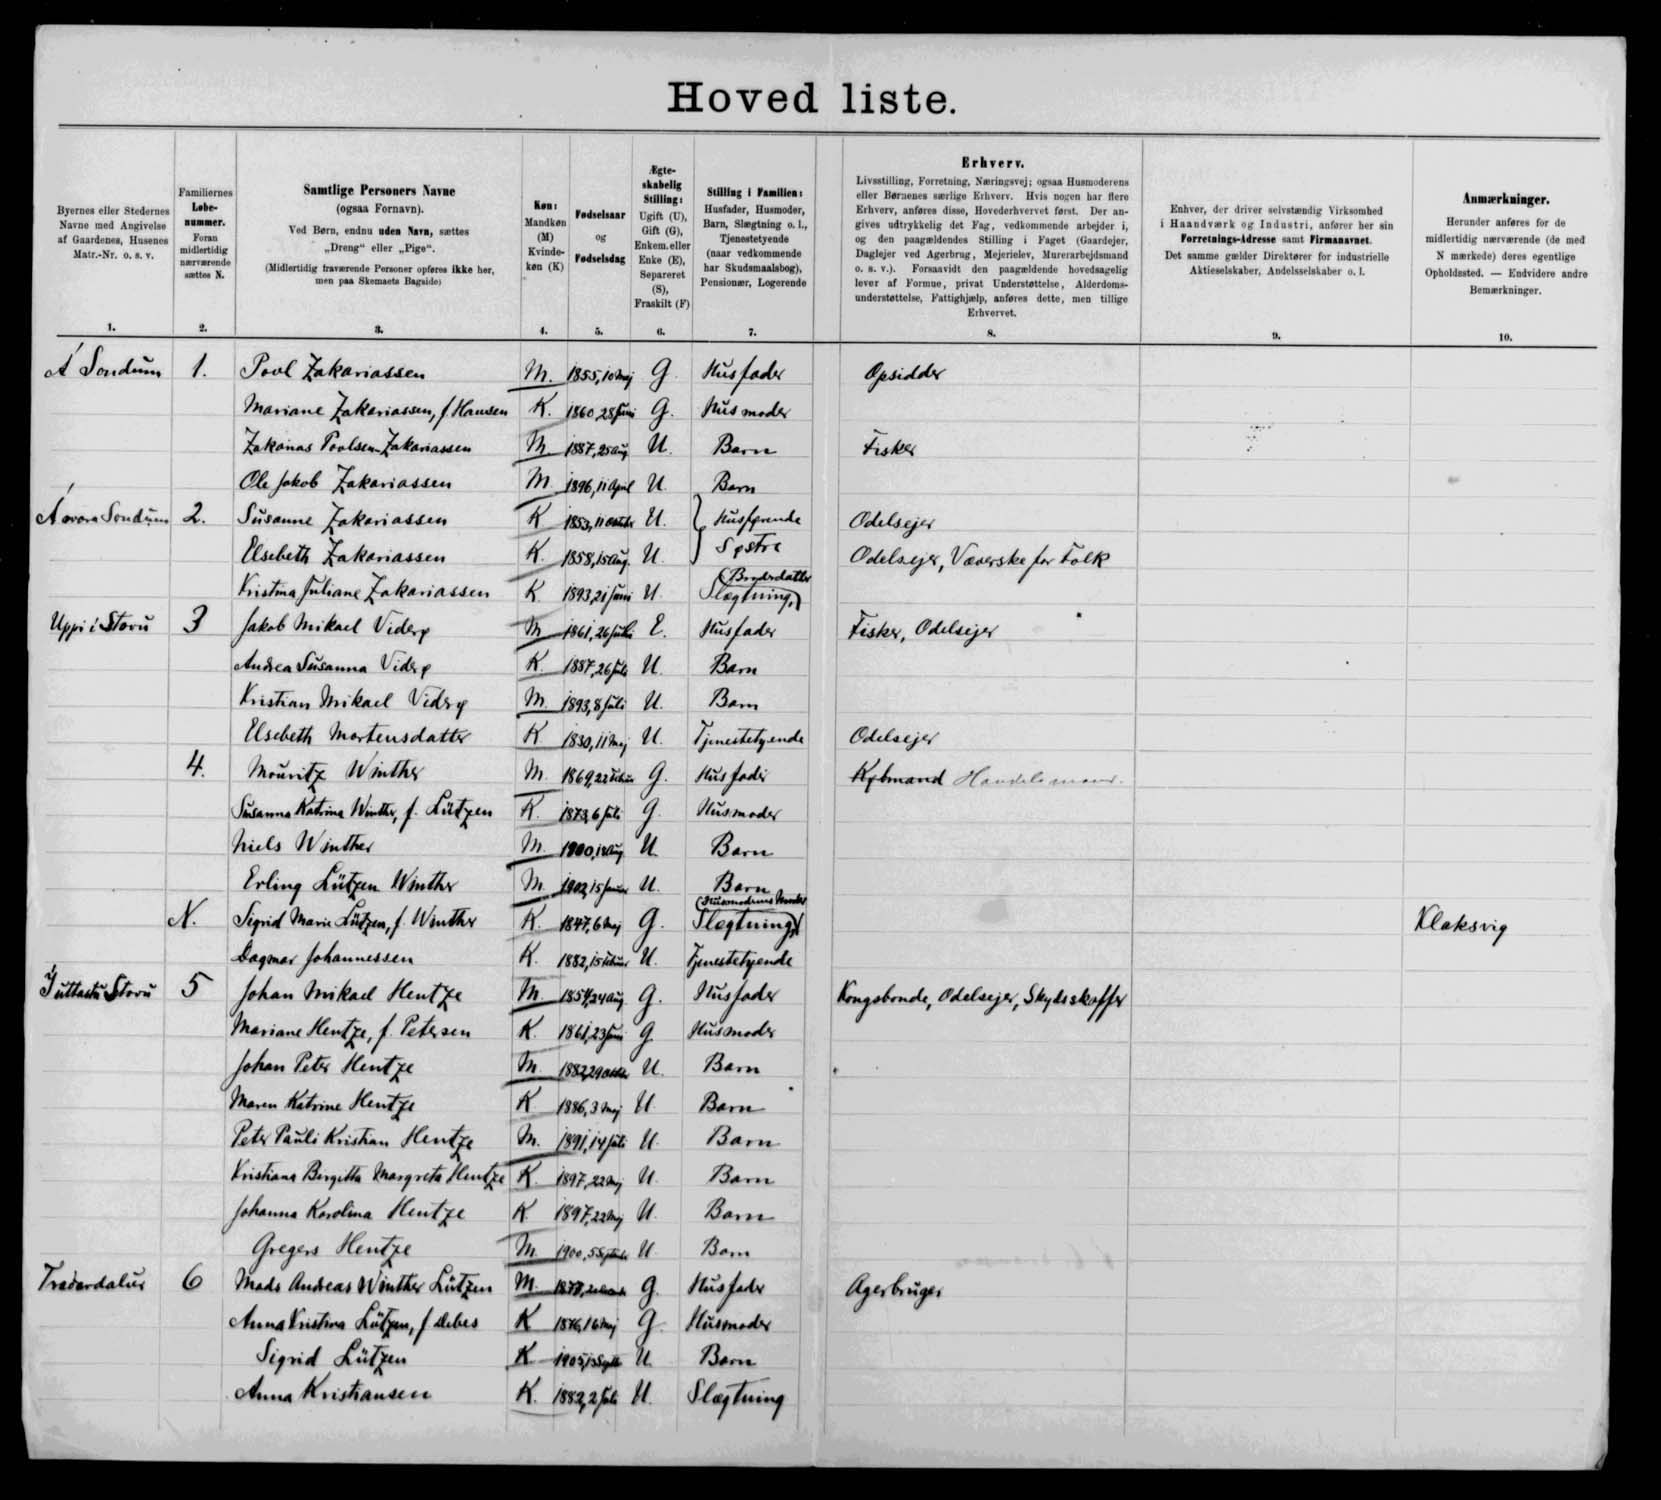 Hoved liste.
Byernes eller Stedernes Navne med Angivelse af Gaardenes, Husenes Matr.-Nr. o. s. v.
Familiernes Løbe-nummer. Foran midlertidig nærværende sættes N.
Samtlige Personers Navne (ogsaa Fornavn). Ved Børn, endnu uden Navn, sættes „Dreng“ eller „Pige“. (Midlertidig fraværende Personer opføres ikke her, men paa Skemaets Bagside)
Køn: Mandkøn (M) Kvinde-køn (K)
Fødselsaar og Fødselsdag
Ægte-skabelig Stilling: Ugift (U), Gift (G), Enkem. eller Enke (E), Separeret (S), Fraskilt (F)
Stilling i Familien: Husfader, Husmoder, Barn, Slægtning o. l., Tjenestetyende (naar vedkommende har Skudsmaalsbog), Pensionær, Logerende
Erhverv. Livsstilling, Forretning, Næringsvej; ogsaa Husmoderens eller Børnenes særlige Erhverv. Hvis nogen har flere Erhverv, anføres disse, Hovederhvervet først. Der angives udtrykkelig det Fag, vedkommende arbejder i, og den paagældendes Stilling i Faget (Gaardejer, Daglejer ved Agerbrug, Mejerielev, Murerarbejdsmand o. s. v.). Forsaavidt den paagældende hovedsagelig lever af Formue, privat Understøttelse, Alderdomsunderstøttelse, Fattighjælp, anføres dette, men tillige Erhvervet.
Enhver, der driver selvstændig Virksomhed i Haandværk og Industri, anfører her sin Forretnings-Adresse samt Firmanavnet. Det samme gælder Direktører for industrielle Aktieselskaber, Andelsselskaber o. l.
Anmærkninger. Herunder anføres for de midlertidig nærværende (de med N mærkede) deres egentlige Opholdssted. — Endvidere andre Bemærkninger.
1. 2. 3. 4. 5. 6. 7. 8. 9. 10.
Á Sondum 1. Povl Zakariassen M. 1855, 10 Maj G. Husfader Opsidder
Mariane Zakariassen, f. Hansen K. 1860, 28 Juni G. Husmoder
Zakarias Povlsen Zakariassen M. 1887, 25 Aug U. Barn Fisker
Ole Jakob Zakariassen M. 1896, 11 April U. Barn
Sondum 2. Susanne Zakariassen K 1853, 11 U. Husførende Odelsejer
Elsebeth Zakariassen K. 1858, 15 Aug. U. Søstre Odelsejer, Væverske for Folk
Kristina Juliane Zakariassen K. 1893, 21 Juni U. Slægtning, (Broderdatter)
Uppi i Stovu 3 Jakob Mikael Viderø M 1861, 26 Juli E. Husfader Fisker, Odelsejer
Andrea Susanna Viderø K. 1887, 26 Juli U. Barn
Kristian Mikael Viderø M. 1893, 8 Juli U. Barn
Elsebeth Mortensdatter K 1830, 11 Maj U. Tjenestetyende Odelsejer
4. Mouritz Winther M. 1869, 22 G. Husfader Købmand Handelsmand.
Susanna Katrina Winther, f. Lützen K. 1873, 6 Juli G. Husmoder
Niels Winther M. 1900, Aug U. Barn
Erling Lützen Winther M. 1902, 15 Januar U. Barn
N. Sigrid Marie Lützen, f. Winther K. 1847, 6 Maj G. Slægtning, (Husmoderens Moder) Klaksvig
Dagmar Johannessen K. 1882, 15 U. Tjenestetyende
Stovu 5 Johan Mikael Hentze M. 1854, 24 Aug G. Husfader Kongsbonde, Odelsejer, Skydsskaffer
Mariane Hentze, f. Petersen K. 1861, 23 Juni G Husmoder
Johan Peter Hentze M. 1882, 29 U. Barn
Maren Katrine Hentze K 1886, 3 Maj U. Barn
Peter Pauli Kristian Hentze M. 1891, 14 Juli U. Barn
Kristiana Birgitta Margreta Hentze K. 1897, 22 Maj U. Barn
Johanna Karolina Hentze K. 1897, 22 Maj U. Barn
Gregers Hentze M. 1900, 5 U. Barn
Tradardalur 6 Mads Andreas Winther Lützen M. G. Husfader Agerbruger
Anna Kristina Lützen, f. Debes K 1876, 16 Maj G. Husmoder
Sigrid Lützen K 1905, U. Barn
Anna Kristiansen K. 1882, 2 Juli U. Slægtning